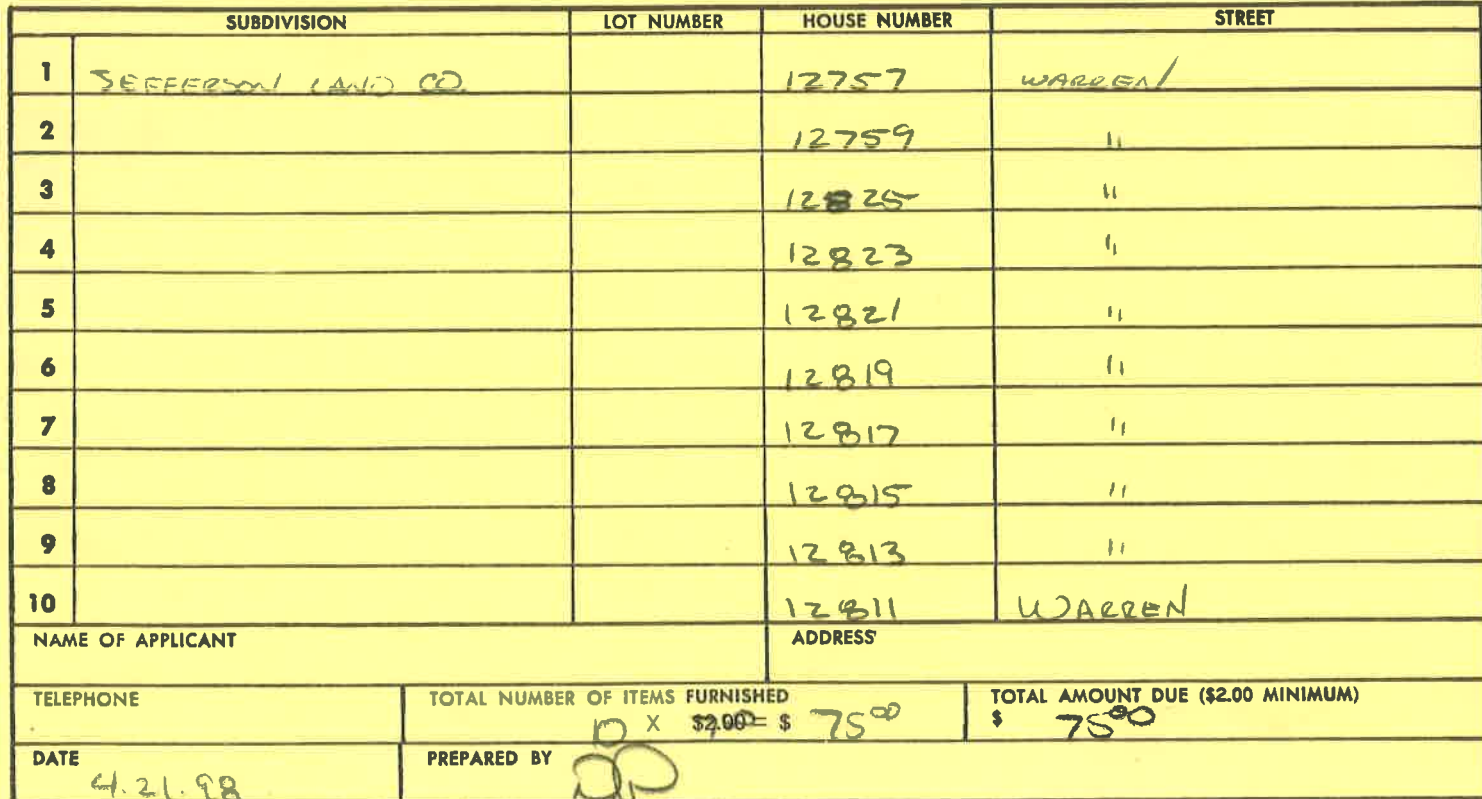 SUBDIVISION LOT NUMBER HOUSE NUMBER STREET
1 JEFFERSON LAND CO. 12757 WARREN
2 12759 "
3 12825 "
4 12823 "
5 12821 "
6 12819 "
7 12817 "
8 12815 "
9 12813 "
10 12811 WARREN
NAME OF APPLICANT ADDRESS
TELEPHONE TOTAL NUMBER OF ITEMS FURNISHED TOTAL AMOUNT DUE ($2.00 MINIMUM)
10 X $2.00 = $ 7500 $ 7500
DATE PREPARED BY
4.21.98